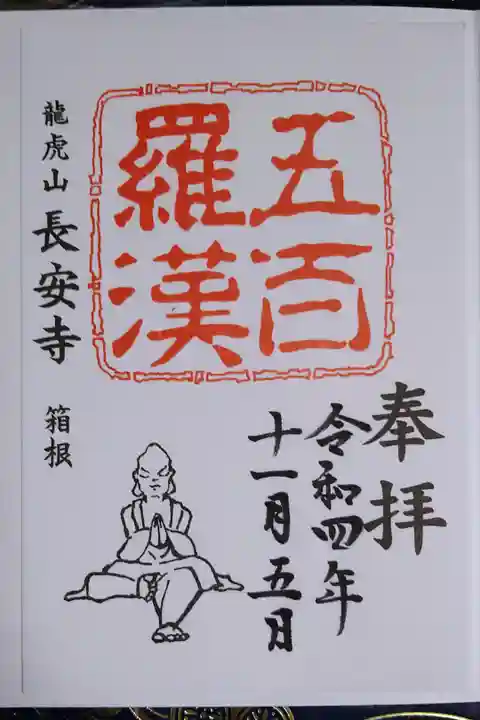 五百
羅漢
奉拝
令和四年
十一月五日
龍虎山 長安寺 箱根